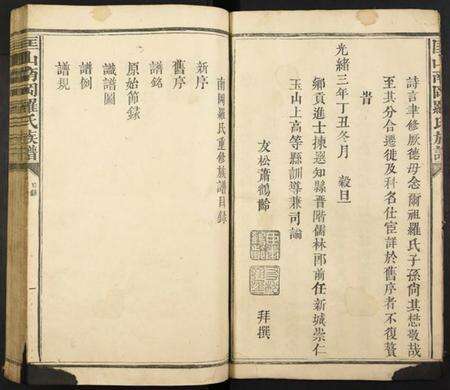 匡山南岡羅氏族譜
詩言聿修厥德毋念爾祖羅氏子孫尚其懋敬哉
至其分合遷徙及科名仕宦詳於舊序者不復贅
旹
光緒三年丁丑冬月 穀旦
鄉貢進士揀選知縣晉階儒林郎前任新城崇仁
玉山上高等縣訓導兼司諭
友松蕭鶴齡 拜撰
南岡羅氏重修族譜目錄
新序
舊序
譜銘
原始節錄
譜圖
譜例
譜規
匡山南岡羅氏族譜 目錄 一